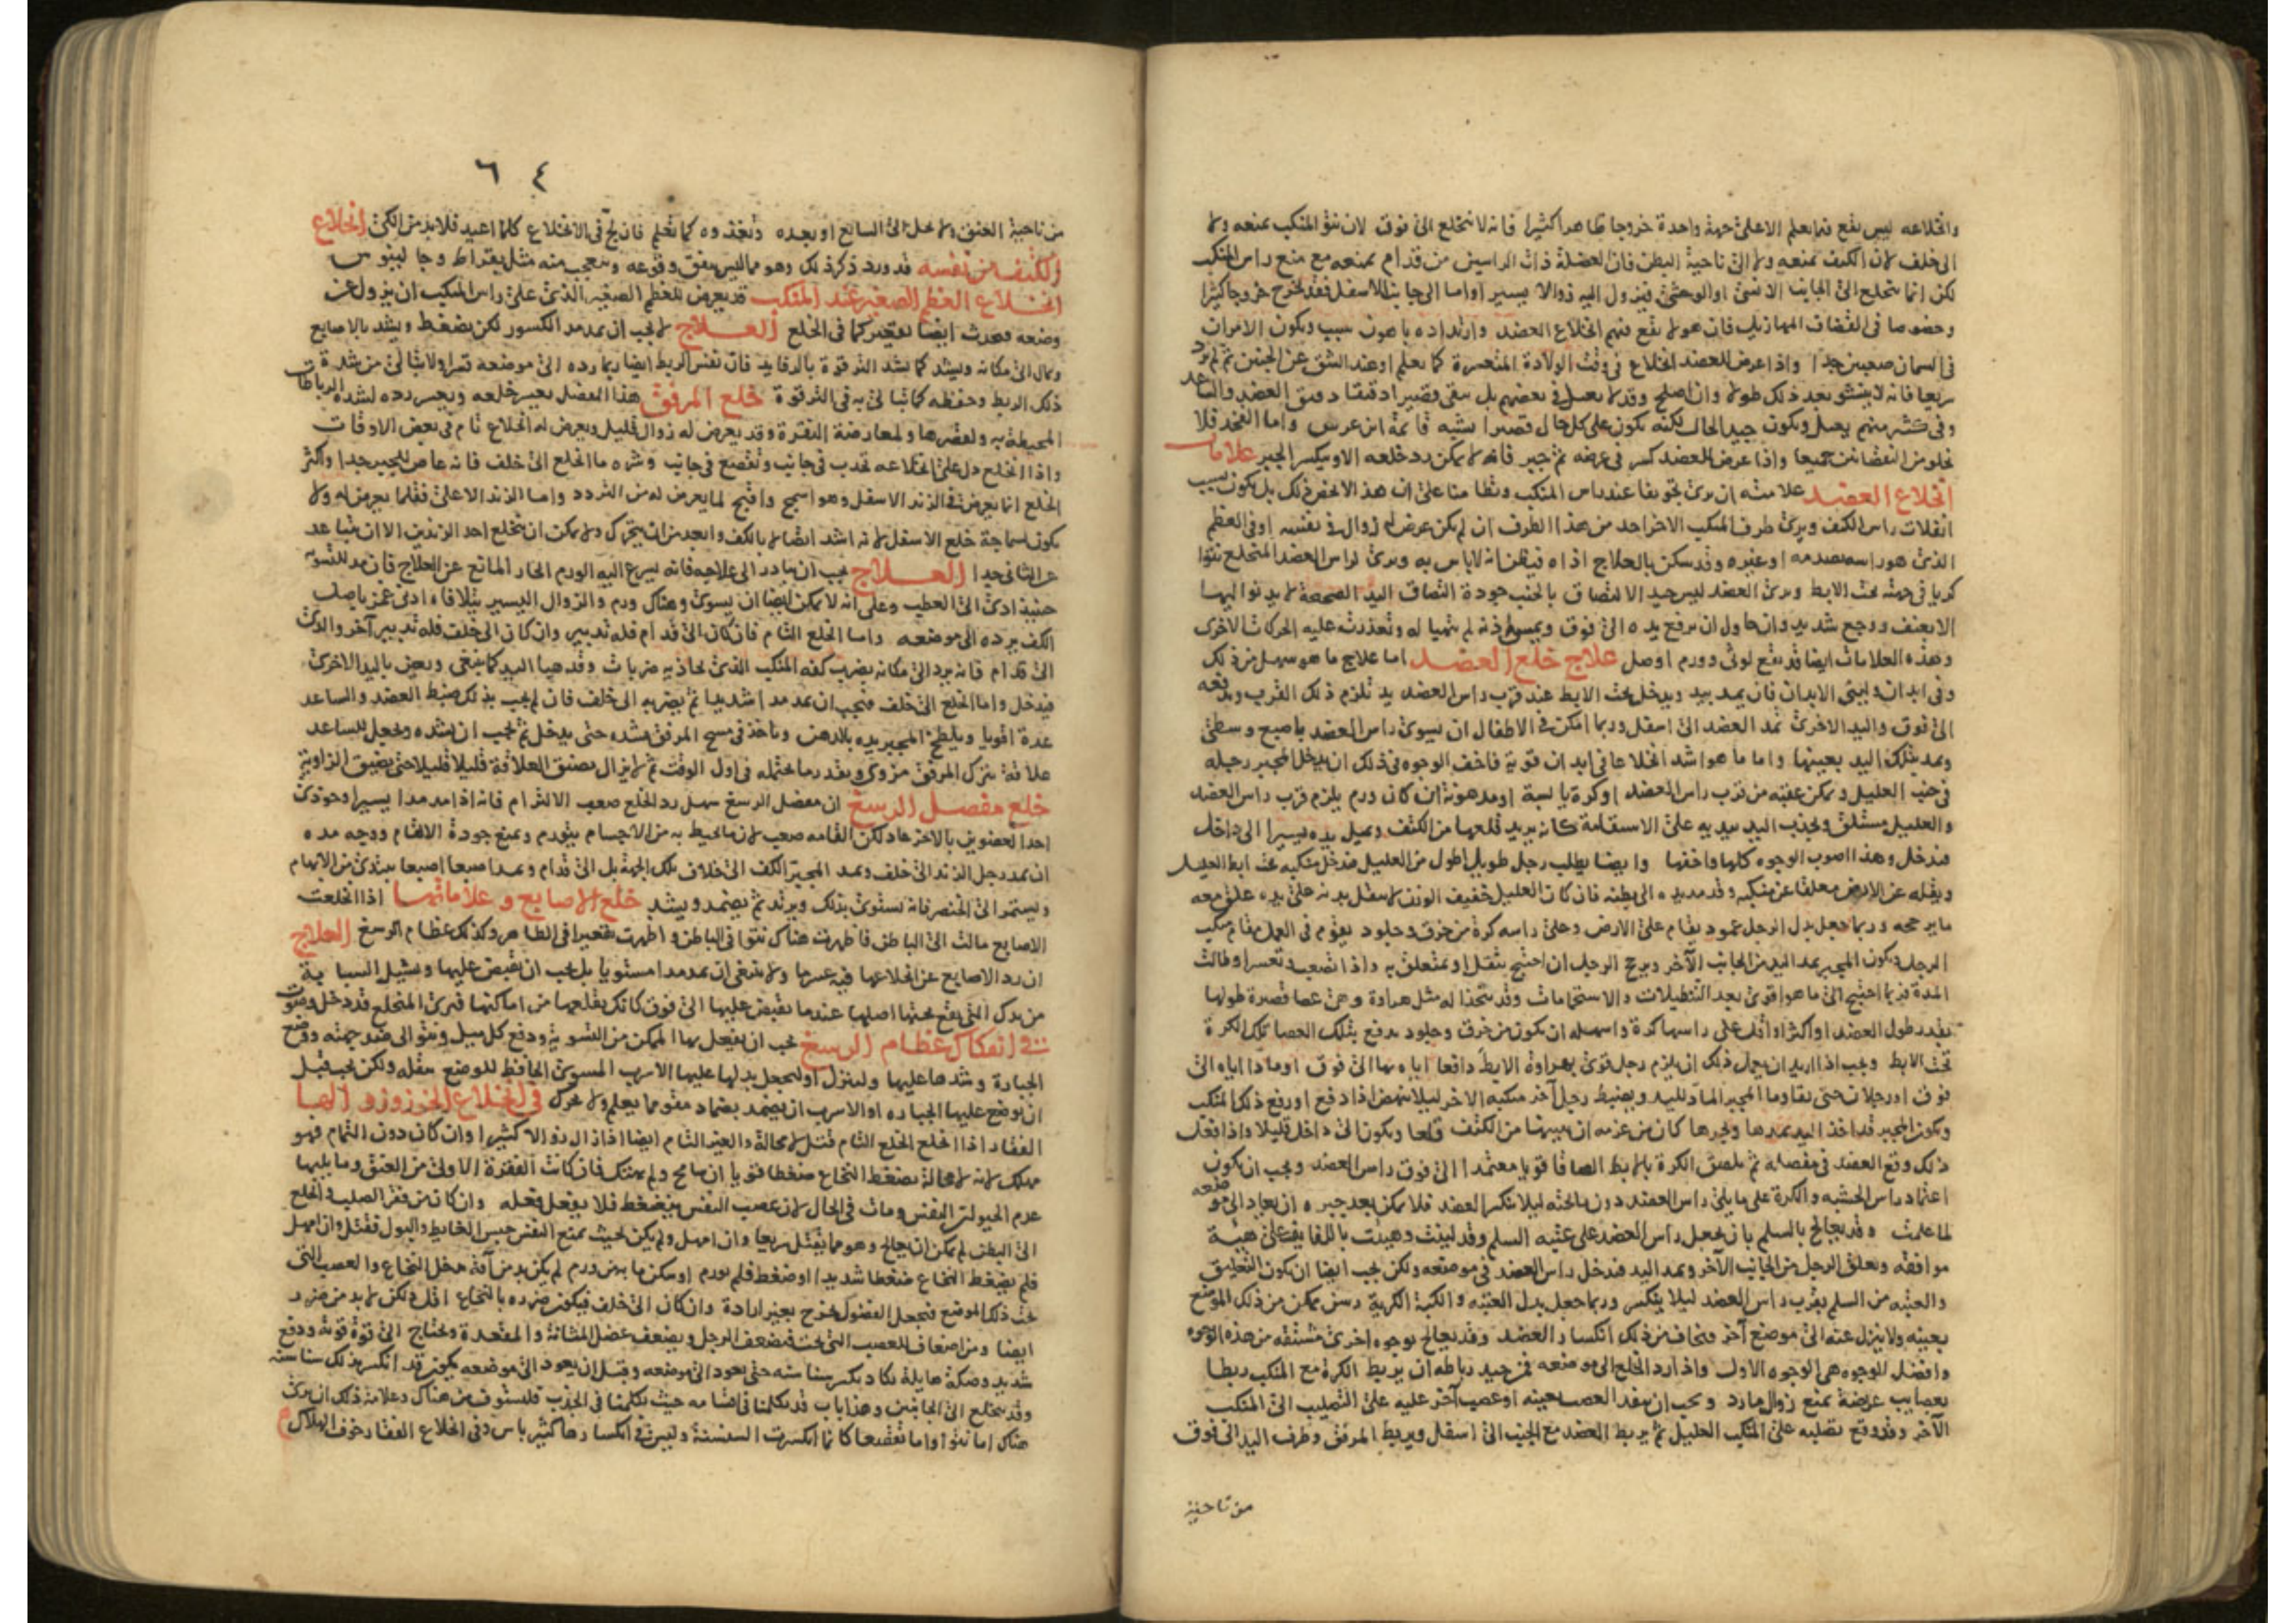 وانخلاعه ليس يقع فيما يعلم الا على جهة واحدة خروجا ظاهرا كثيرا فانه لا ينخلع الى فوق لان نتؤ المنكب يمنعه ولا
الى خلف لان الكتف يمنعه ولا الى ناحية البطن فان العضلة ذات الراسين من قدام يمنعه مع منع راس المنكب
لكن انما ينخلع الى الجانب الانسى او الوحشى فيزول اليه زوالا يسيرا واما الى جانب الاسفل فقد يخرج خروجا كثيرا
وخصوصا فى القضاف المهازيل فان هولا يقع فيهم انخلاع العضد وارتداده باهون سبب ويكون الامران
فى السمان صعبين جدا واذا عرض للعضد انخلاع فى وقت الولادة المتعسرة كما يعلم او عند الشق عن الجنين ثم لم يرد
سريعا فانه لا ينشو بعد ذلك طولا وان اصلح وقد لا يعبل فى بعضهم بل يبقى قصيرا دقيقا دقيق العضد والساعد
وفى كثير منهم يعبل ويكون جيد الحال لكنه يكون على كل حال قصيرا يشبه قائمة ابن عرس واما الفخذ فلا
تخلو من النقصانين جميعا واذا عرض للعضد كسر فى عرضه ثم جبر فانه لا يمكن رد خلعه الا ويكسر الجبر علامات
انخلاع العضد علامته ان يرى تجويفا عند راس المنكب وتطامنا على ان هذا لا يخص ذلك بل يكون بسبب
انفلات راس الكتف ويرى طرف المنكب الاخر احد من هذا الطرف ان لم يكن عرض له زوال فى نفسه او فى العظم
الذى هو راسه بصدمه او غيره وقد سكن بالعلاج اذاه فيظن انه لا باس به ويرى لراس العضد المنخلع نتوا
كريا فى جهته تحت الابط ويرى العضد ليس جيد الالتصاق بالجنب جودة التصاق اليد الصحيحة لا يدنو اليها
الا بعنف ووجع شديد وان حاول ان يرفع يده الى فوق ويمس اذنه لم يتهيا له وتعذرت عليه الحركات الاخرى
وهذه العلامات ايضا قد يقع لوثى وورم اوصل علاج خلع العضد اما علاج ما هو سهل من ذلك
وفى ابدان ولينى الابدان فان يمد بيد ويدخل تحت الابط عند قرب راس العضد يد تلزم ذلك القرب ويدفعه
الى فوق واليد الاخرى تمد العضد الى اسفل وربما امكن فى الاطفال ان يسوى راس العضد باصبع وسطى
ويمد بتلك اليد بعينها واما ما هو اشد انخلاعا فى ابدان قوية فاخف الوجوه فى ذلك ان يدخل المجبر رجله
فى جنب العليل ويمكن عقبه من قرب راس العضد او كرة يابسة او مدهونة ان كان ورم يلزم قرب راس العضد
والعليل مستلق ويجذب اليد بيديه على الاستقامة كانه يريد قلعها من الكتف ويميل يده يسيرا الى داخل
فيدخل وهذا اصوب الوجوه كلها واخفها وايضا يطلب رجل طويل اطول من العليل فيدخل منكبه تحت ابط العليل
ويقله عن الارض معلقا عن منكبه وقد مد يده الى بطنه فان كان العليل خفيف الوزن لا يسفل بدنه على يده علق معه
ما يرجحه وربما جعل بدل الرجل عمود يقام على الارض وعلى راسه كرة من خرق وجلود يقوم فى العمل مقام منكب
الرجل ويكون المجبر يمد اليد من الجانب الآخر ويرجح الرجل ان احتيج بثقل او بمتعلق به واذا تصعبت وتعسر وطالت
المدة فربما احتيج الى ما هو اقوى بعد التنطيلات والاستحمامات وقد يتخذ له مثل هراوة وهى عصا قصيرة طولها
بقدر طول العضد او اكثر او اقل على راسها كرة واسهله ان يكون من خرق وجلود يدفع بتلك العصا تلك الكرة
تحت الابط ويجب اذا اريد ان يعمل ذلك ان يلزم رجل قوى بهراوة الابط دافعا اياه بها الى فوق او مادا اياه الى
فوق او رجلان حتى يقاوما المجبر الماد لليد ويضبط رجل آخر منكبه الاخر ليلا ينهض اذا دفع او رفع ذلك المنكب
ويكون المجبر قد اخذ اليد يمدها ويجرها كان من عزمه ان يبينها من الكتف قلعا ويكون الى داخل قليلا واذا فعل
ذلك وقع العضد فى مفصله ثم يلصق الكرة بالابط الصاقا قويا معتمدا الى فوق راس العضد ويجب ان يكون
اعتماد راس الخشبه والكرة على ما يلى راس العضد دون ما تحته ليلا ينكسر العضد فلا يمكن بعد جبره ان يعاد الى موضعه
لما علمت وقد يعالج بالسلم بان يجعل راس العضد على عتبه السلم وقد لينت وهيئت باللفايف على هيئة
موافقه ويعلق الرجل من الجانب الآخر ويمد اليد فيدخل راس العضد فى موضعه ولكن يجب ايضا ان يكون التعليق
والعتبه من السلم بقرب راس العضد ليلا ينكسر وربما جعل بدل العتبه والكبة الكرية رسن يمكن من ذلك الموضع
بعينه ولا ينزل عنه الى موضع آخر فيخاف من ذلك انكسار العضد وقد يعالج بوجوه اخرى مشتقه من هذه الوجوه
وافضل الوجوه هى الوجوه الاول واذا رد الخلع الى موضعه فمن جيد رباطه ان يربط الكرة مع المنكب ربطا
بعصايب عريضة يمنع زوال ما رد ويجب ان ينفد العصب بعينه او عصب آخر عليه على التصليب الى المنكب
الآخر وقد وقع تصليبه على المنكب العليل ثم يربط العضد مع الجنب الى اسفل ويربط المرفق وطرف اليد الى فوق
من ناحية
٦٤
من ناحية العنق ولا يحل الى السابع او بعده وتغذوه كما تعلم فان لج فى الانخلاع كلما اعيد فلا بد من الكى انخلاع
الكتف من نفسه قد ورد ذكر ذلك وهو مما ليس يتفق وقوعه ويتعجب منه مثل بقراط وجالينوس
انخلاع العظم الصغير عند المنكب قد يعرض للعظم الصغير الذى على راس المنكب ان يزول عن
وضعه فيحدث ايضا تقعير كما فى الخلع العلاج لا يجب ان يمد مد الكسور لكن يضغط ويشد بالاصابع
ويمال الى مكانه ويشد كما يشد الترقوة بالرفايد فان نفس الربط ايضا ربما رده الى موضعه قسرا ولا يبالى من شدة
ذلك الربط وحفظه كما يبالى به فى الترقوة خلع المرفق هذا المفصل يعسر خلعه ويعسر رده لشدة الرباطات
المحيطة به ولقصرها ولمعارضة النقرة وقد يعرض له زوال قليل ويعرض له انخلاع تام فى بعض الاوقات
واذا انخلع دل على انخلاعه تحدب فى جانب وتقصع فى جانب وشره ما انخلع الى خلف فانه عاص للجبر جدا واكثر
الخلع انما يعرض فى الزند الاسفل وهو اسمج واقبح لما يعرض له من التردد واما الزند الاعلى فقلما يعرض له ولا
يكون لسماجة خلع الاسفل لانه اشد اتصالا بالكف وابعد من ان يتحرك ولا يمكن ان ينخلع احد الزندين الا ان يتباعد
عن الثانى جدا العلاج يجب ان يبادر الى علاجه فانه يسرع اليه الورم الحار المانع عن العلاج فان مد للتسويه
حينئذ ادى الى العطب وعلى انه لا يمكن ايضا ان يسوى وهناك ورم والزوال اليسير يتلافاه ادنى غمز باصل
الكف يرده الى موضعه واما الخلع التام فان كان الى قدام فله تدبير وان كان الى خلف فله تدبير آخر والذى
الى قدام فانه يرد الى مكانه بضرب كفه المنكب الذى يحاذيه ضربات وقد هيا اليد كما ينبغى ويعين باليد الاخرى
فيدخل واما الخلع الى خلف فيجب ان يمد مدا شديدا ثم يضرب الى خلف فان لم يجب بذلك ضبط العضد والساعد
عدة اقويا ويلطخ المجبر يده بالدهن وياخذ فى مسح المرفق بشدة حتى يدخل ثم يجب ان يشده ويجعل للساعد
علاقة يترك المرفق مزوى وبقدر ما يحتمله فى اول الوقت ثم لا يزال يضيق العلاقة قليلا قليلا حتى يضيق الزاوية
خلع مفصل الرسغ ان مفصل الرسغ سهل رد الخلع صعب الالتزام فانه اذا مد مدا يسيرا وحوذى
احد العضوين بالاخر عاد لكن التامه صعب لان ما يحيط به من الاجسام يتورم ويمنع جودة الالتام ووجه مده
ان يمد رجل الزند الى خلف ويمد المجبر الكف الى خلاف تلك الجهة بل الى قدام ويمد اصبعا اصبعا يبتدى من الابهام
ويستمر الى الخنصر فانه يستوى بذلك ويرتد ثم يضمد ويشد خلع الاصابع وعلاماتها اذا انخلعت
الاصابع مالت الى الباطن فاظهرت هناك نتوا فى الباطن واظهرت تقعيرا فى الظاهر وكذلك عظام الرسغ العلاج
ان رد الاصابع عن انخلاعها فيه عسر ما ولا ينبغى ان يمد مدا مستويا بل يجب ان يقبض عليها ويشيل السبابة
من يدك التى يقع تحتها اصلها عند ما تقبض عليها الى فوق كانك تقلعها من اماكنها فترى المنخلع قد دخل وصوت
فى انفكاك عظام الرسغ يجب ان يفعل بها الممكن من التسوية ودفع كل ميل ونتو الى ضد جهته ووضع
الجبارة وشدها عليها ولينزل او ليجعل بدلها عليها الاسرب المسوى الحافظ للموضع بثقله ولكن يجب قبل
ان يوضع عليها الجباره او الاسرب ان يضمد بضماد مقو مما يعلم ولا يحرك فى انخلاع الخرز وزوالها
الفقار اذا انخلع الخلع التام قتل لا محالة والغير التام ايضا اذا زال زوالا كثيرا وان كان دون التمام فهو
مهلك لانه لا محالة يضغط النخاع ضغطا قويا ان سامح ولم يهتك فان كانت الفقرة الاولى من العنق وما يليها
عدم الحيوان التنفس ومات فى الحال لان عصب النفس ينضغط فلا يفعل فعله وان كان من فقر الصلب وانخلع
الى البطن لم يمكن ان يعالج وهو مما يقتل سريعا وان امهل ولم يكن بحيث يمنع النفس حبس الغايط والبول فقتل وان امهل
فلم يضغط النخاع ضغطا شديدا او ضغط فلم يورم او سكن ما به من ورم لم يكن بد من آفة تدخل النخاع والعصب التى
تحت ذلك الموضع فيجعل الفضول تخرج بغير ارادة وان كان الى خلف فيكون ضرره بالنخاع اقل ولكن لا بد من ضرر
ايضا ومن اضعاف للعصب التى تحت فيضعف الرجل ويضعف عضل المثانة والمقعدة ويحتاج الى قوة قوية ودفع
شديد وصكة هايلة يكاد يكسر سناسنه حتى يعود الى موضعه وقبل ان يعود الى موضعه يكون قد انكسر بذلك سناسنه
وقد ينخلع الى الجانبين وهذا باب قد تكلمنا فى اقسامه حيث تكلمنا فى الحدب فليستوف من هناك وعلامة ذلك ان يرى
هناك اما نتوا واما تقصعا كانما انكسرت السنسنة وليس فى انكسارها كثير باس وفى انخلاع الفقار خوف الهلاك